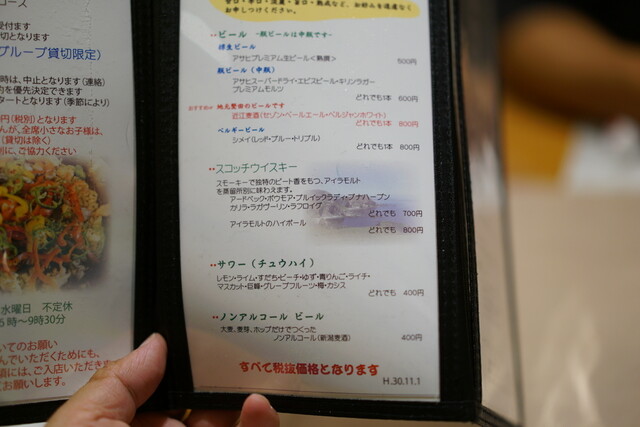 コース
受付ます
切となります
グループ貸切限定)
時は、中止となります(連絡)
約を優先決定できます
タートとなります(季節により)
円(税別)となります
んが、全席小さなお子様は、
(貸切は除く)
別に、ご協力ください
水曜日 不定休
5時〜9時30分
いてのお願い
んでいただくためにも、
には、ご入店いただきま
お願いします。
甘口・辛口・淡麗・旨口・熟成など、お好みを遠慮なく
お申しつけください。
ビール －瓶ビールは中瓶です－
樽生ビール
アサヒプレミアム生ビール<熟撰> 500円
瓶ビール(中瓶)
アサヒスーパードライ・エビスビール・キリンラガー
プレミアムモルツ
どれでも1本 600円
おすすめ!! 地元繁栄のビールです
近江麦酒(セゾン・ペールエール・ベルジャンホワイト)
どれでも1本 800円
ベルギービール
シメイ(レッド・ブルー・トリプル)
どれでも1本 800円
スコッチウイスキー
スモーキーで独特のピート香をもつ、アイラモルト
を蒸留所別に味わえます。
アードベック・ボウモア・ブルイックラディ・ブナハーブン
カリラ・ラガヴーリン・ラフロイグ
どれでも 700円
アイラモルトのハイボール
どれでも 800円
サワー(チュウハイ)
レモン・ライム・すだち・ピーチ・ゆず・青りんご・ライチ・
マスカット・巨峰・グレープフルーツ・梅・カシス
どれでも 400円
ノンアルコール ビール
大麦、麦芽、ホップだけでつくった
ノンアルコール(新潟麦酒) 400円
すべて税抜価格となります
H.30.11.1